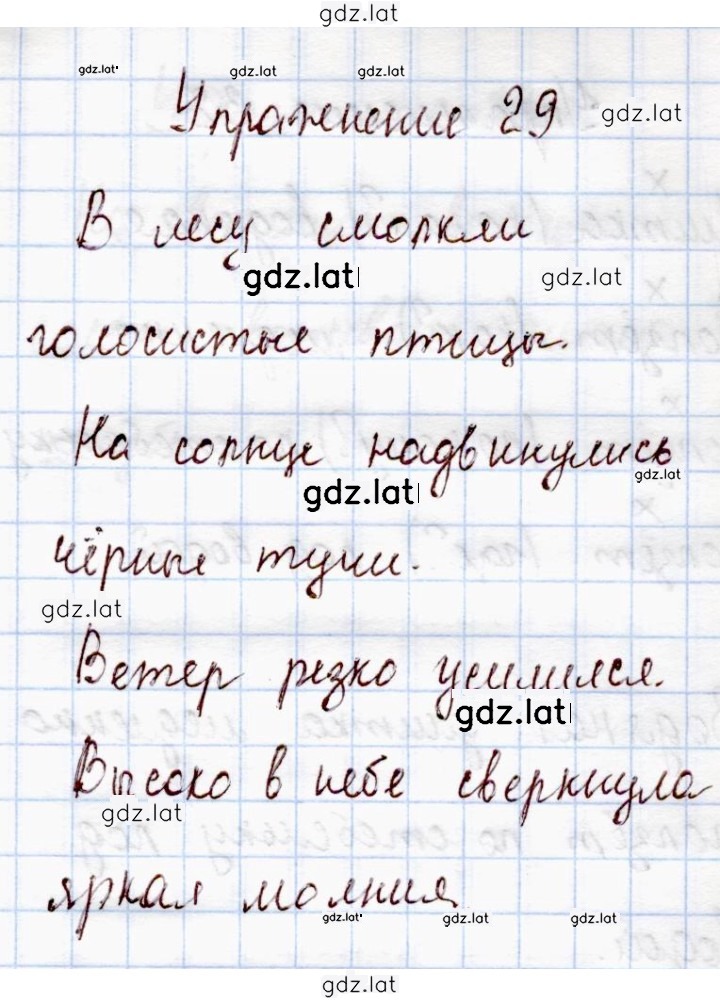 gdz.lat
gdz.lat gdz.lat gdz.lat
Упражнение 29 gdz.lat
В лесу смолкли
gdz.lat gdz.lat
голосистые птицы.
На солнце надвинулись
gdz.lat gdz.lat
чёрные тучи.
gdz.lat
Ветер резко усилился.
gdz.lat
Высоко в небе сверкнула
gdz.lat
яркая молния
gdz.lat gdz.lat gdz.lat
gdz.lat